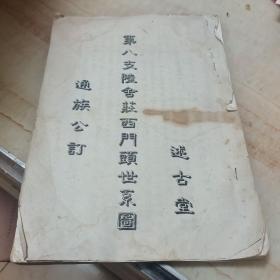 述古堂
第八支陸舍莊西門頭世系圖
通族公訂